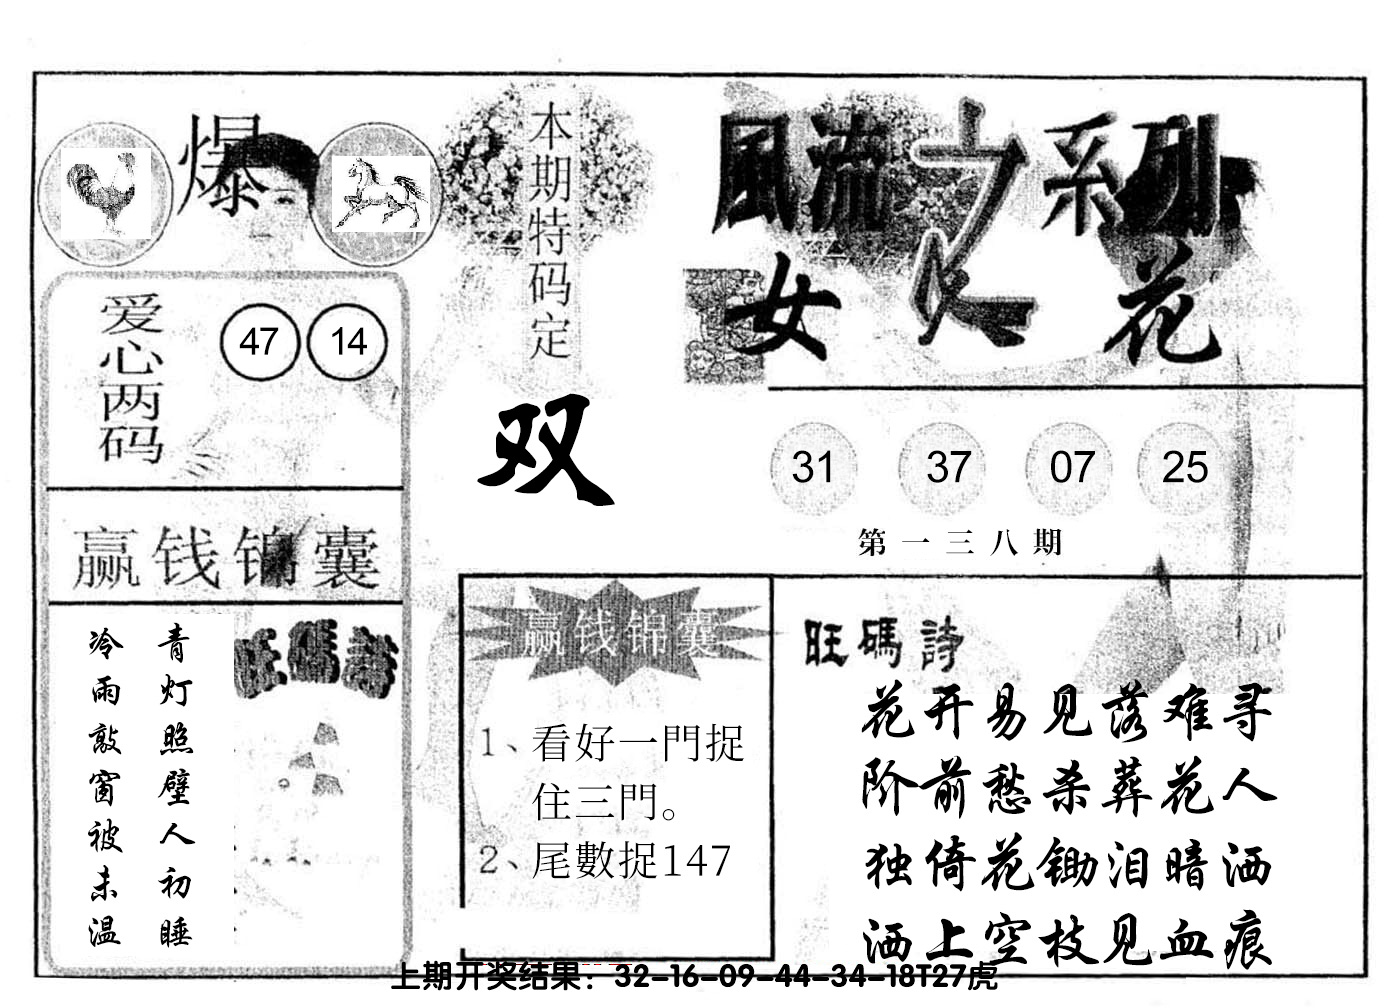 爆
本期特码定
双
風流之系列
女人花
爱心两码
47 14
31 37 07 25
第一三八期
赢钱锦囊
青灯照壁人初睡
冷雨敲窗被未温
旺碼詩
赢钱锦囊
1、看好一門捉
住三門。
2、尾數捉147
旺碼詩
花开易见落难寻
阶前愁杀葬花人
独倚花锄泪暗洒
洒上空枝见血痕
上期开奖结果：32-16-09-44-34-18T27虎